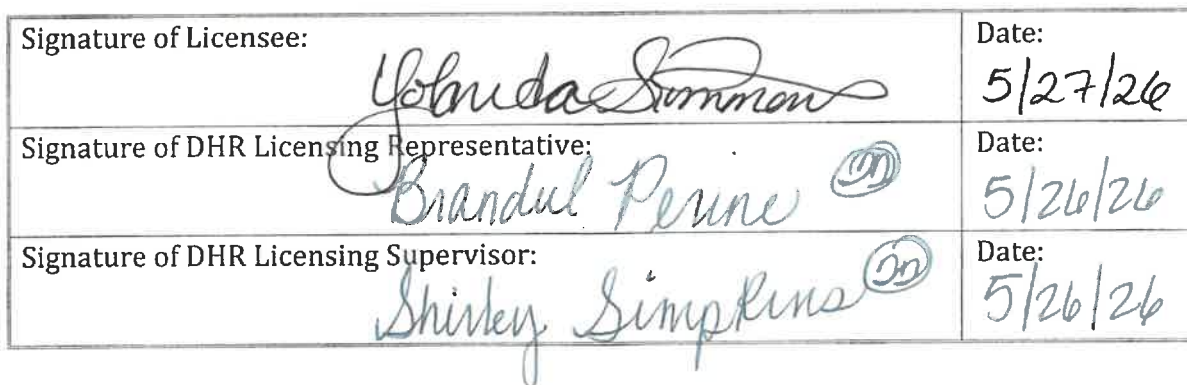 Signature of Licensee: Date:
Yolanda Simmons 5/27/26
Signature of DHR Licensing Representative: Date:
Perine 5/26/26
Signature of DHR Licensing Supervisor: Date:
Shirley Simpkins 5/26/26